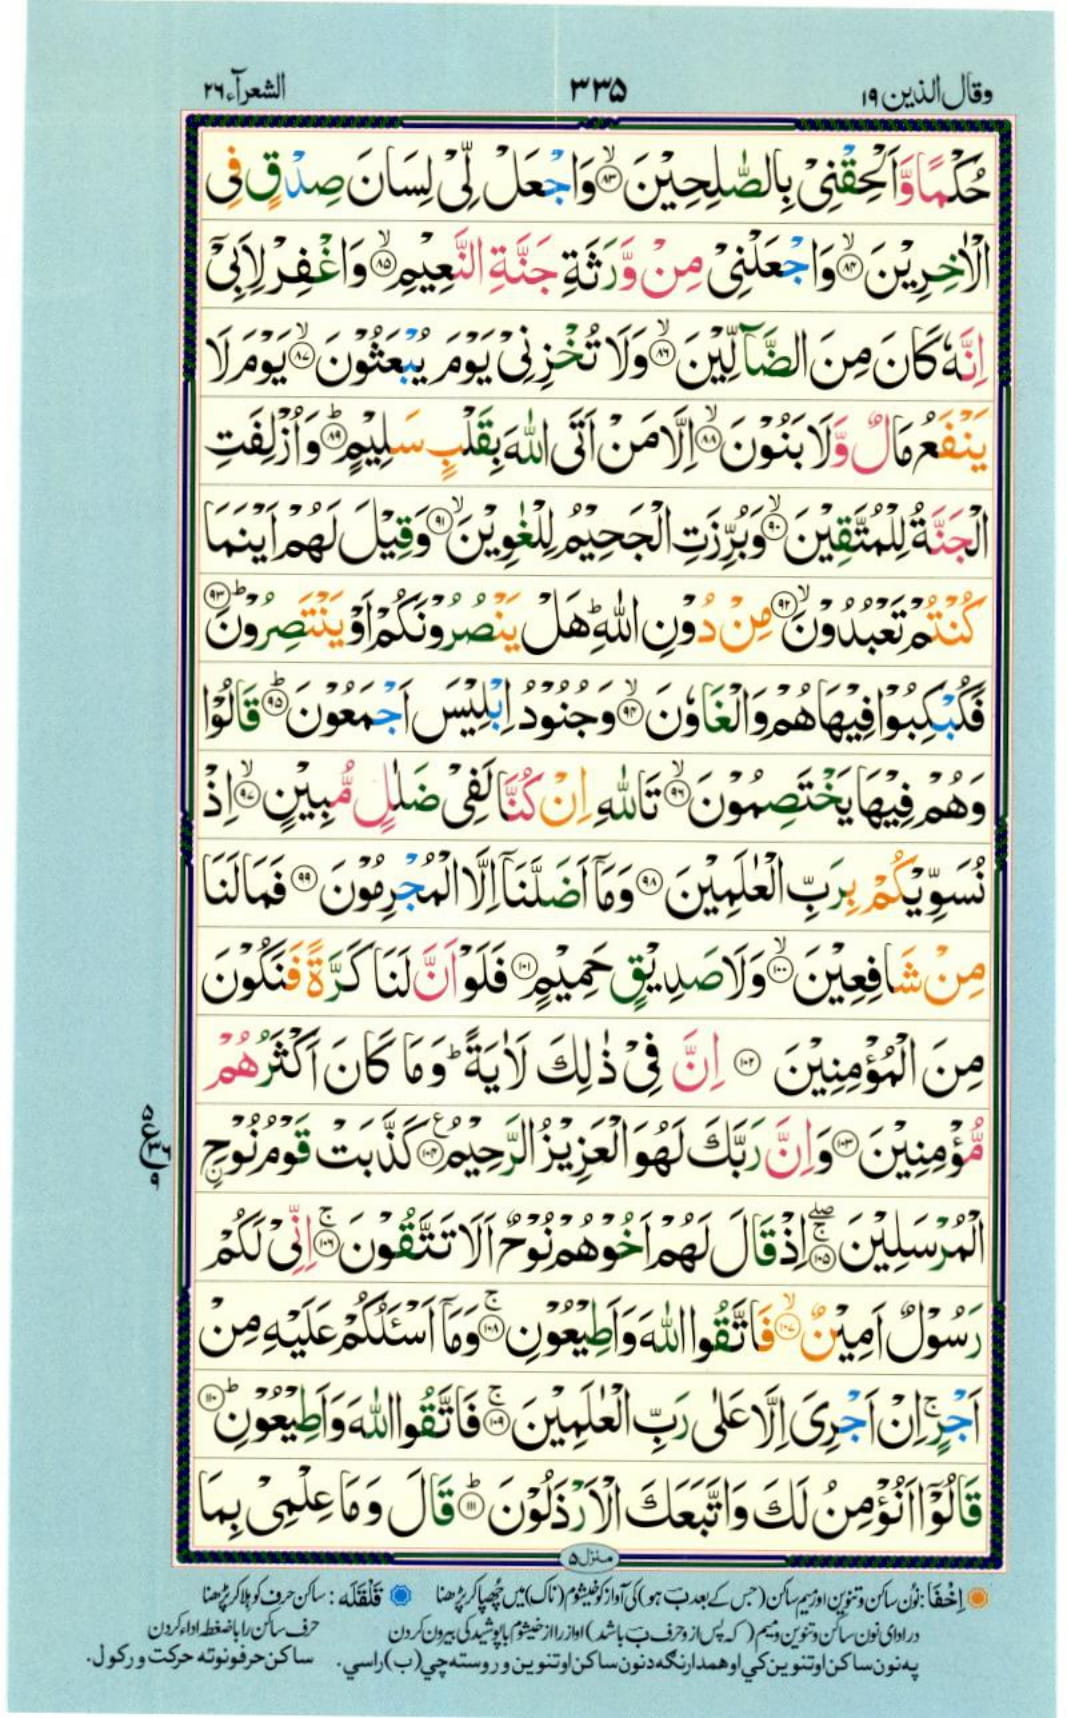 وقال الذين ۱۹
۳۳۵
الشعرآء ۲۶
حُكْمًا وَّاَلْحِقْنِیْ بِالصّٰلِحِیْنَ ۙ﴿۸۳﴾ وَاجْعَلْ لِّیْ لِسَانَ صِدْقٍ فِی
الْاٰخِرِیْنَ ۙ﴿۸۴﴾ وَاجْعَلْنِیْ مِنْ وَّرَثَةِ جَنَّةِ النَّعِیْمِ ۙ﴿۸۵﴾ وَاغْفِرْ لِاَبِیْۤ
اِنَّهٗ كَانَ مِنَ الضَّآلِّیْنَ ۙ﴿۸۶﴾ وَلَا تُخْزِنِیْ یَوْمَ یُبْعَثُوْنَ ۙ﴿۸۷﴾ یَوْمَ لَا
یَنْفَعُ مَالٌ وَّلَا بَنُوْنَ ۙ﴿۸۸﴾ اِلَّا مَنْ اَتَی اللّٰهَ بِقَلْبٍ سَلِیْمٍ ؕ﴿۸۹﴾ وَاُزْلِفَتِ
الْجَنَّةُ لِلْمُتَّقِیْنَ ۙ﴿۹۰﴾ وَبُرِّزَتِ الْجَحِیْمُ لِلْغٰوِیْنَ ۙ﴿۹۱﴾ وَقِیْلَ لَهُمْ اَیْنَمَا
كُنْتُمْ تَعْبُدُوْنَ ۙ﴿۹۲﴾ مِنْ دُوْنِ اللّٰهِ ؕ هَلْ یَنْصُرُوْنَكُمْ اَوْ یَنْتَصِرُوْنَ ؕ﴿۹۳﴾
فَكُبْكِبُوْا فِیْهَا هُمْ وَالْغَاوٗنَ ۙ﴿۹۴﴾ وَجُنُوْدُ اِبْلِیْسَ اَجْمَعُوْنَ ؕ﴿۹۵﴾ قَالُوْا
وَهُمْ فِیْهَا یَخْتَصِمُوْنَ ۙ﴿۹۶﴾ تَاللّٰهِ اِنْ كُنَّا لَفِیْ ضَلٰلٍ مُّبِیْنٍ ۙ﴿۹۷﴾ اِذْ
نُسَوِّیْكُمْ بِرَبِّ الْعٰلَمِیْنَ ﴿۹۸﴾ وَمَاۤ اَضَلَّنَاۤ اِلَّا الْمُجْرِمُوْنَ ﴿۹۹﴾ فَمَا لَنَا
مِنْ شَافِعِیْنَ ۙ﴿۱۰۰﴾ وَلَا صَدِیْقٍ حَمِیْمٍ ﴿۱۰۱﴾ فَلَوْ اَنَّ لَنَا كَرَّةً فَنَكُوْنَ
مِنَ الْمُؤْمِنِیْنَ ﴿۱۰۲﴾ اِنَّ فِیْ ذٰلِكَ لَاٰیَةً ؕ وَمَا كَانَ اَكْثَرُهُمْ
مُّؤْمِنِیْنَ ﴿۱۰۳﴾ وَاِنَّ رَبَّكَ لَهُوَ الْعَزِیْزُ الرَّحِیْمُ ﴿۱۰۴﴾ ع كَذَّبَتْ قَوْمُ نُوْحِ
ع ۵ ۳۶ ۹
الْمُرْسَلِیْنَ ۚۖ﴿۱۰۵﴾ اِذْ قَالَ لَهُمْ اَخُوْهُمْ نُوْحٌ اَلَا تَتَّقُوْنَ ۚ﴿۱۰۶﴾ اِنِّیْ لَكُمْ
رَسُوْلٌ اَمِیْنٌ ۙ﴿۱۰۷﴾ فَاتَّقُوا اللّٰهَ وَاَطِیْعُوْنِ ۚ﴿۱۰۸﴾ وَمَاۤ اَسْـَٔلُكُمْ عَلَیْهِ مِنْ
اَجْرٍ ۚ اِنْ اَجْرِیَ اِلَّا عَلٰی رَبِّ الْعٰلَمِیْنَ ۚ﴿۱۰۹﴾ فَاتَّقُوا اللّٰهَ وَاَطِیْعُوْنِ ؕ﴿۱۱۰﴾
قَالُوْۤا اَنُؤْمِنُ لَكَ وَاتَّبَعَكَ الْاَرْذَلُوْنَ ؕ﴿۱۱۱﴾ قَالَ وَمَا عِلْمِیْ بِمَا
منزل ۵
اِخْفَا : نُون ساکن و تنوین اور میم ساکن (جس کے بعد ب ہو) کی آواز کو خیشوم (ناک) میں چُھپا کر پڑھنا قَلْقَلَه : ساکن حرف کو ہلا کر پڑھنا
در ادای نون ساکن و تنوین و میم (که پس از و حرف ب باشد) آواز را از خیشوم با پوشیدگی بیرون کردن حرف ساکن را با ضغطه اداء کردن
په نون ساکن او تنوین کي او همدارنګه د نون ساکن او تنوین وروسته چي (ب) راسي. ساکن حرفونو ته حرکت ورکول.